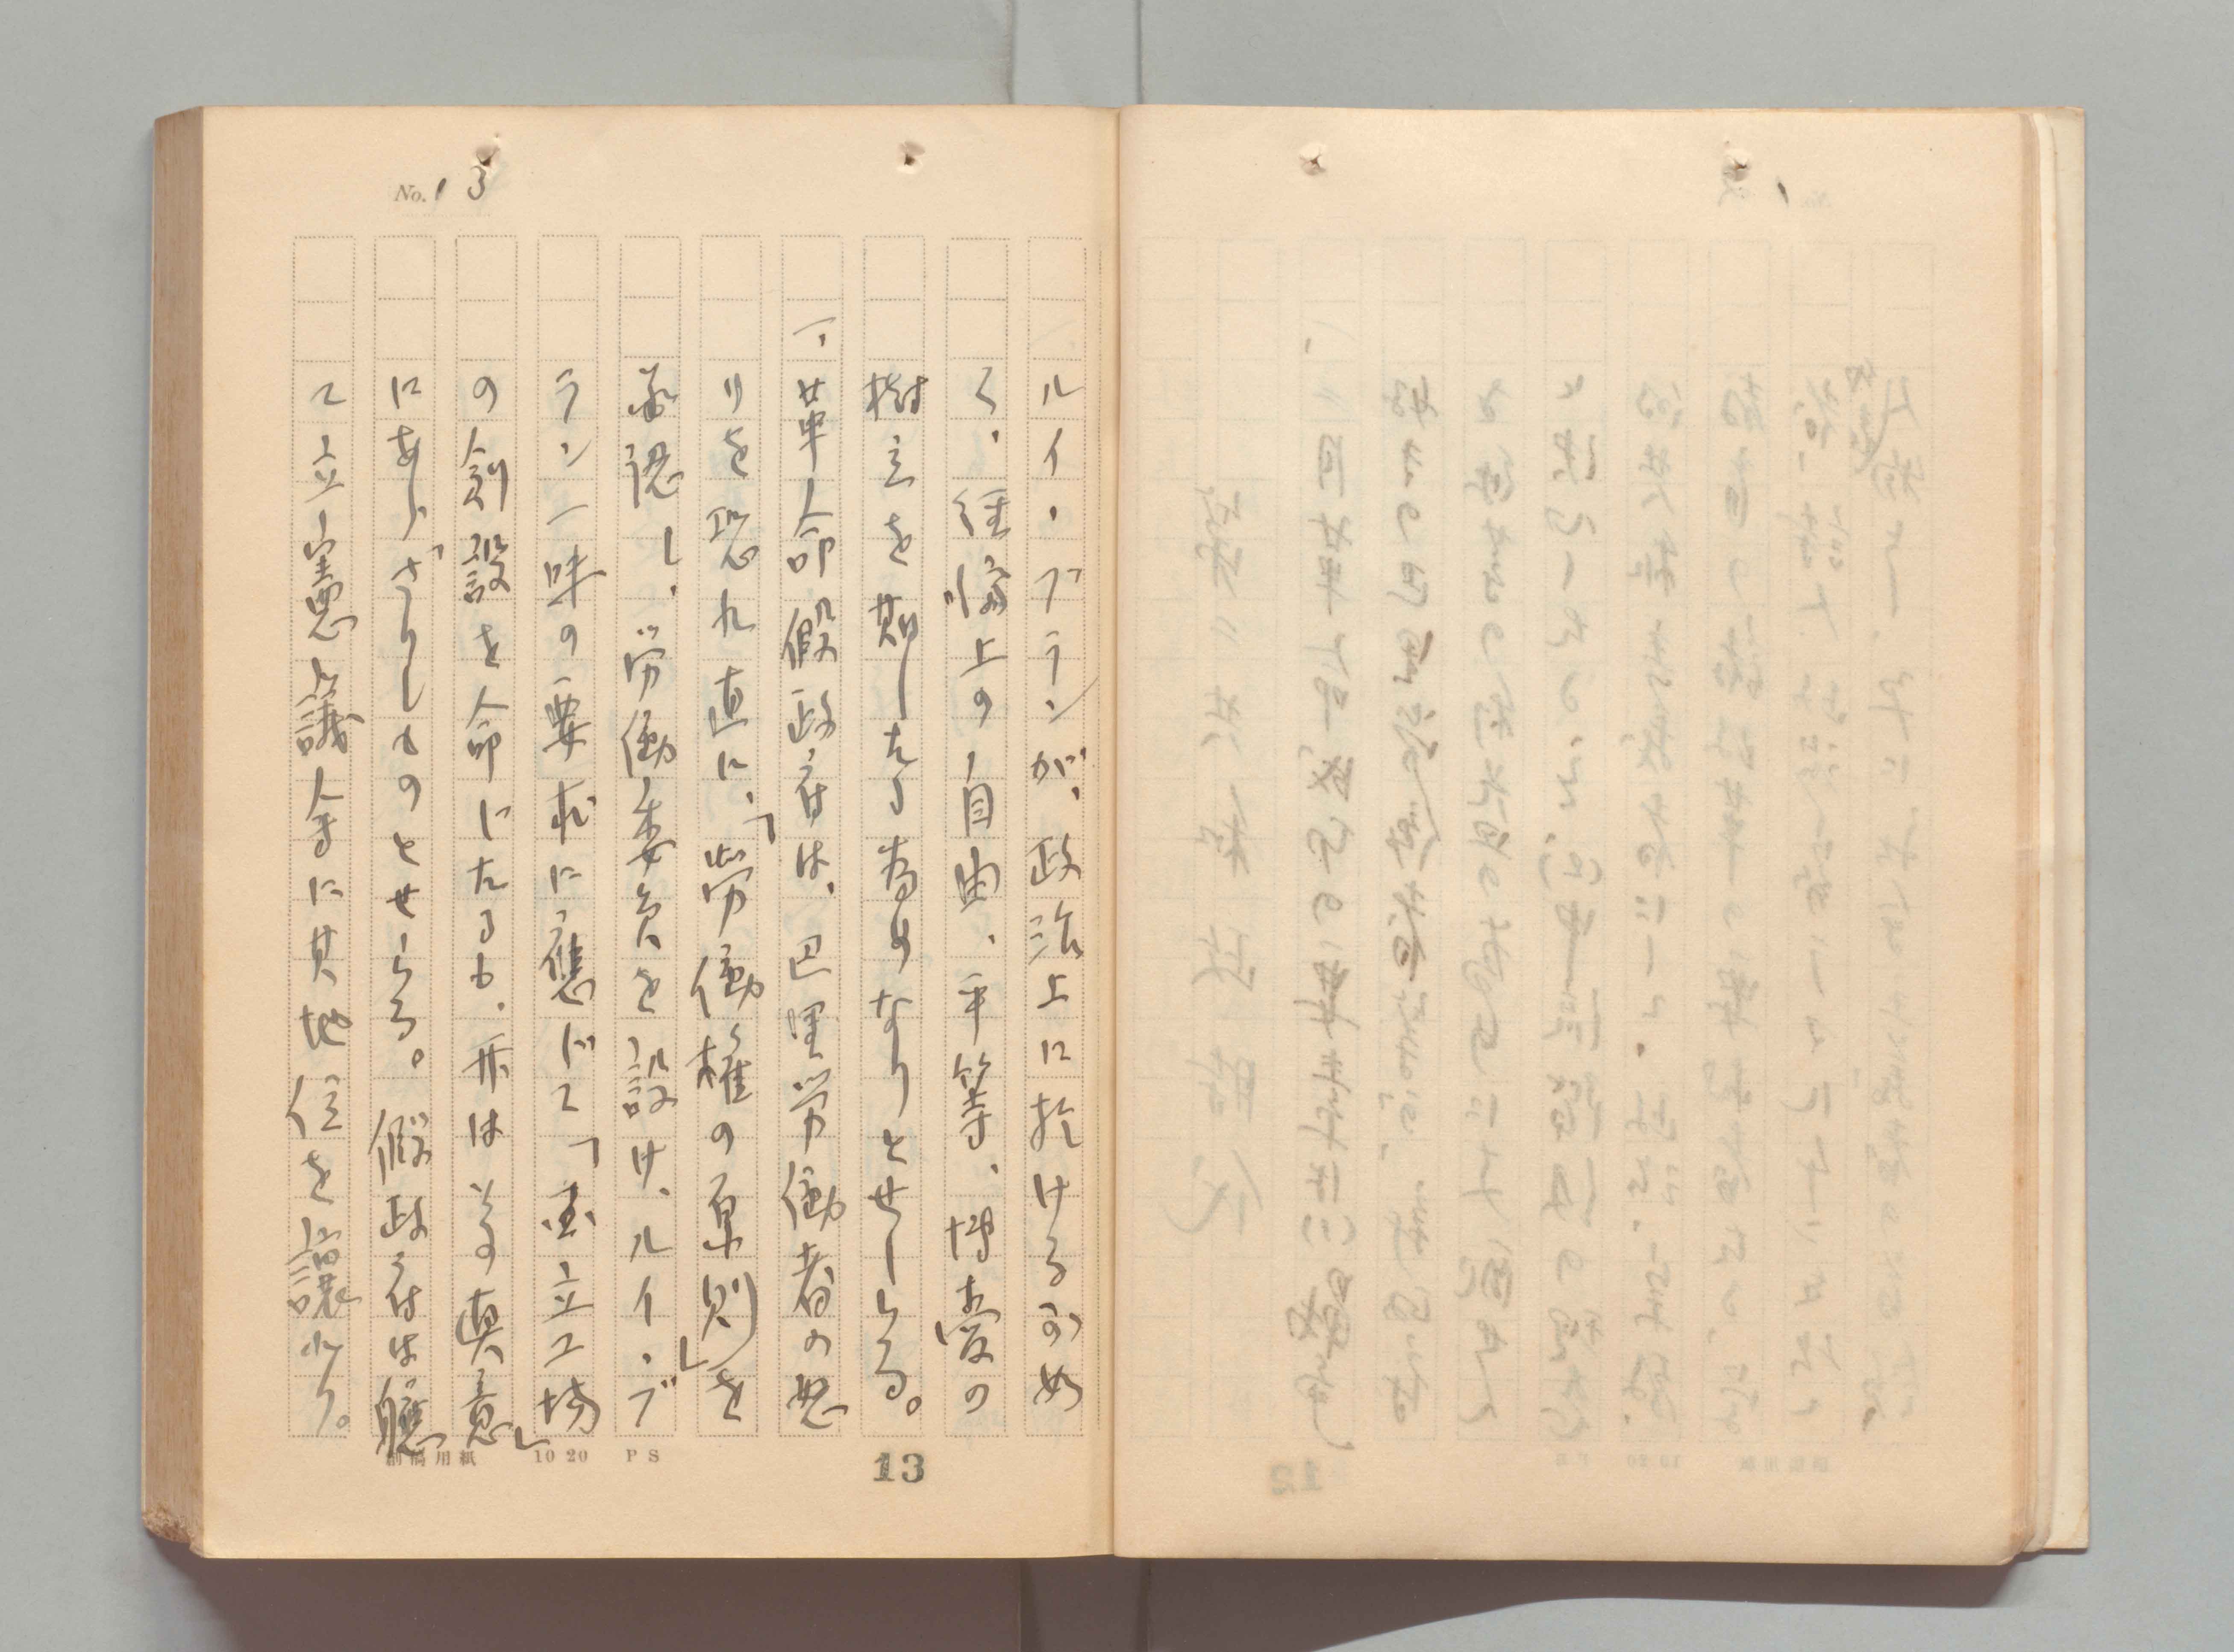 No. 13
ルイ・ブランが、政治上に於ける如め
く、経済上の自由、平等、博愛の
樹立を期したる為めなりとせしらる。
一、革命假政府は、巴里労働者の怒
りを恐れ直に、「労働権の原則」を
承認し、労働委員を設け、ルイ・ブ
ラン一味の要求に應じて「国立工場」
の創設を命じたるも、亦はその真意
にあらざりしものとせらる。假政府は聴
て立憲議会に其地位を譲れり。
原稿用紙 10 20 PS
13